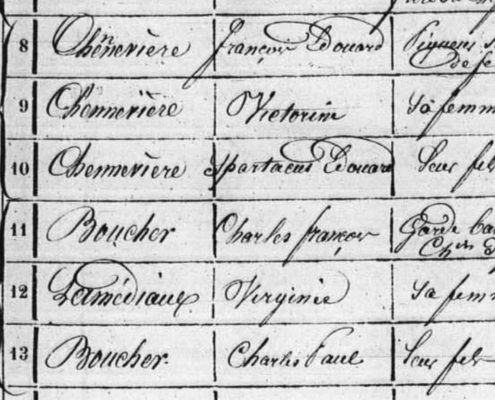 8 Chennevière François Edouard Piqueur
de fe
9 Chennevière Victorine Sa femm
10 Chennevière Spartacus Edouard Leur fils
11 Boucher Charles françois Garde ba
Ch^in
12 Virginie Sa femm
13 Boucher Charles Paul Leur fils